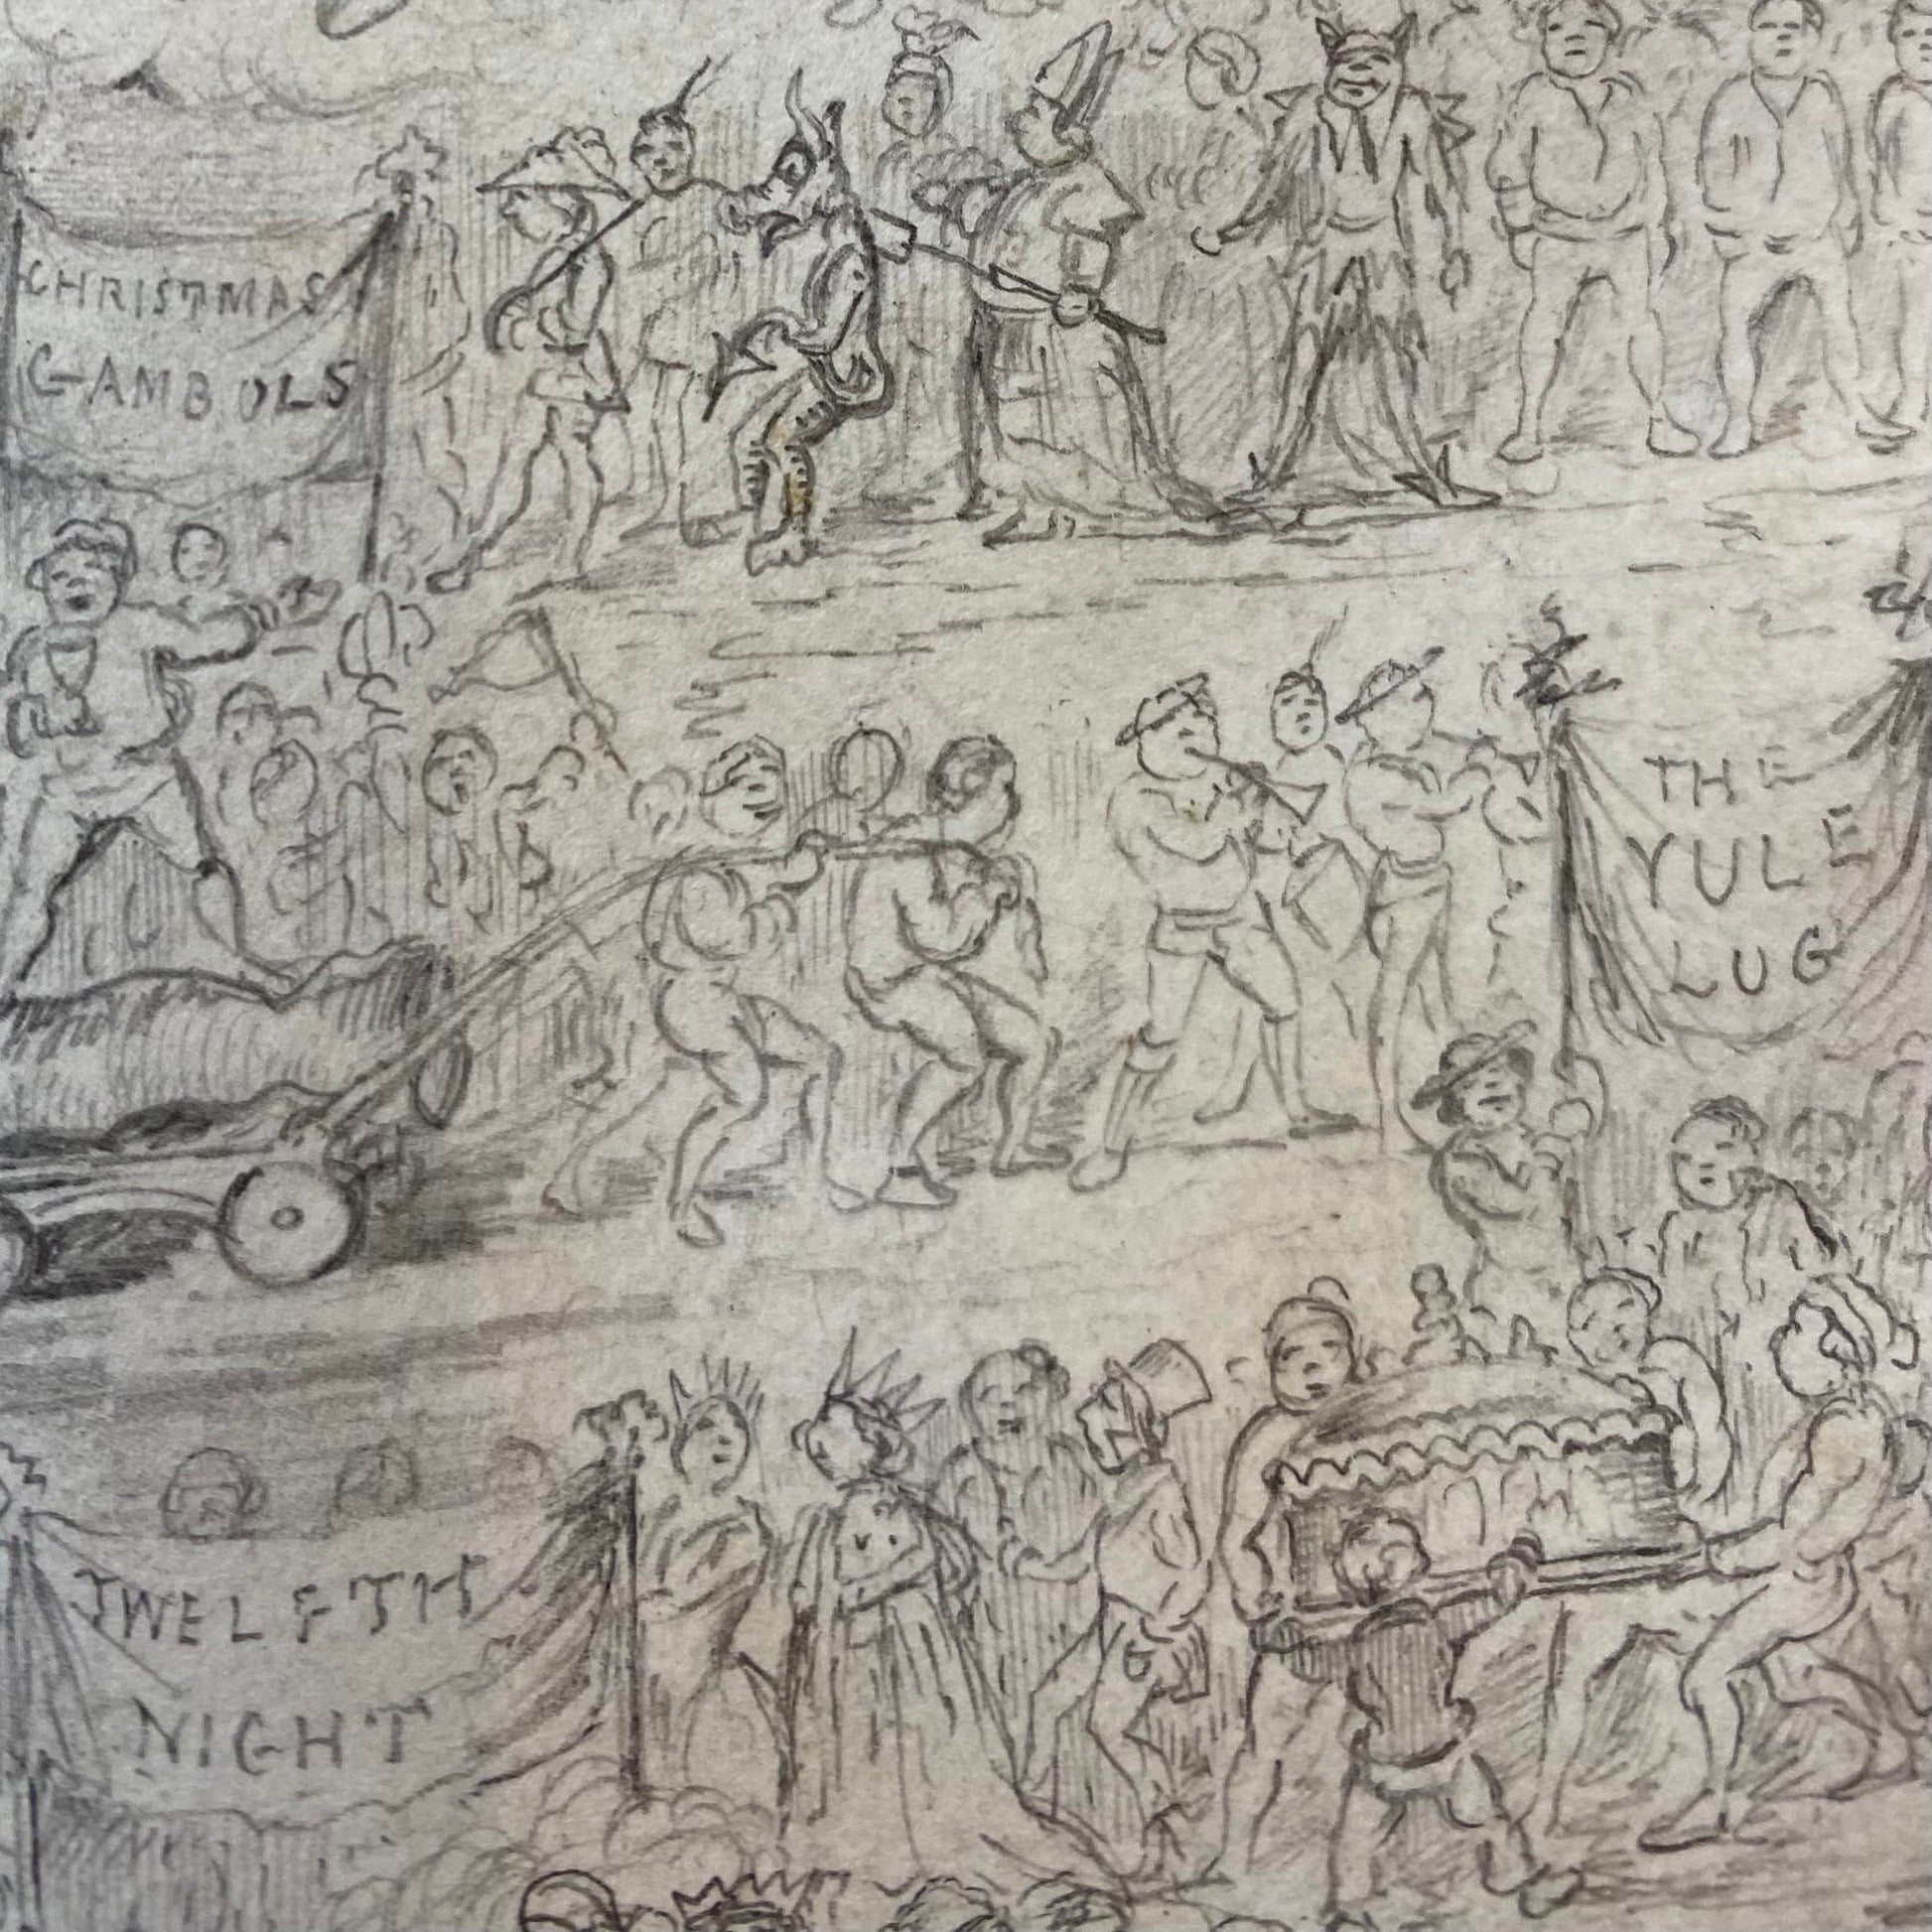 CHRISTMAS
GAMBOLS
THE
YULE
LUG
TWELFTH
NIGHT